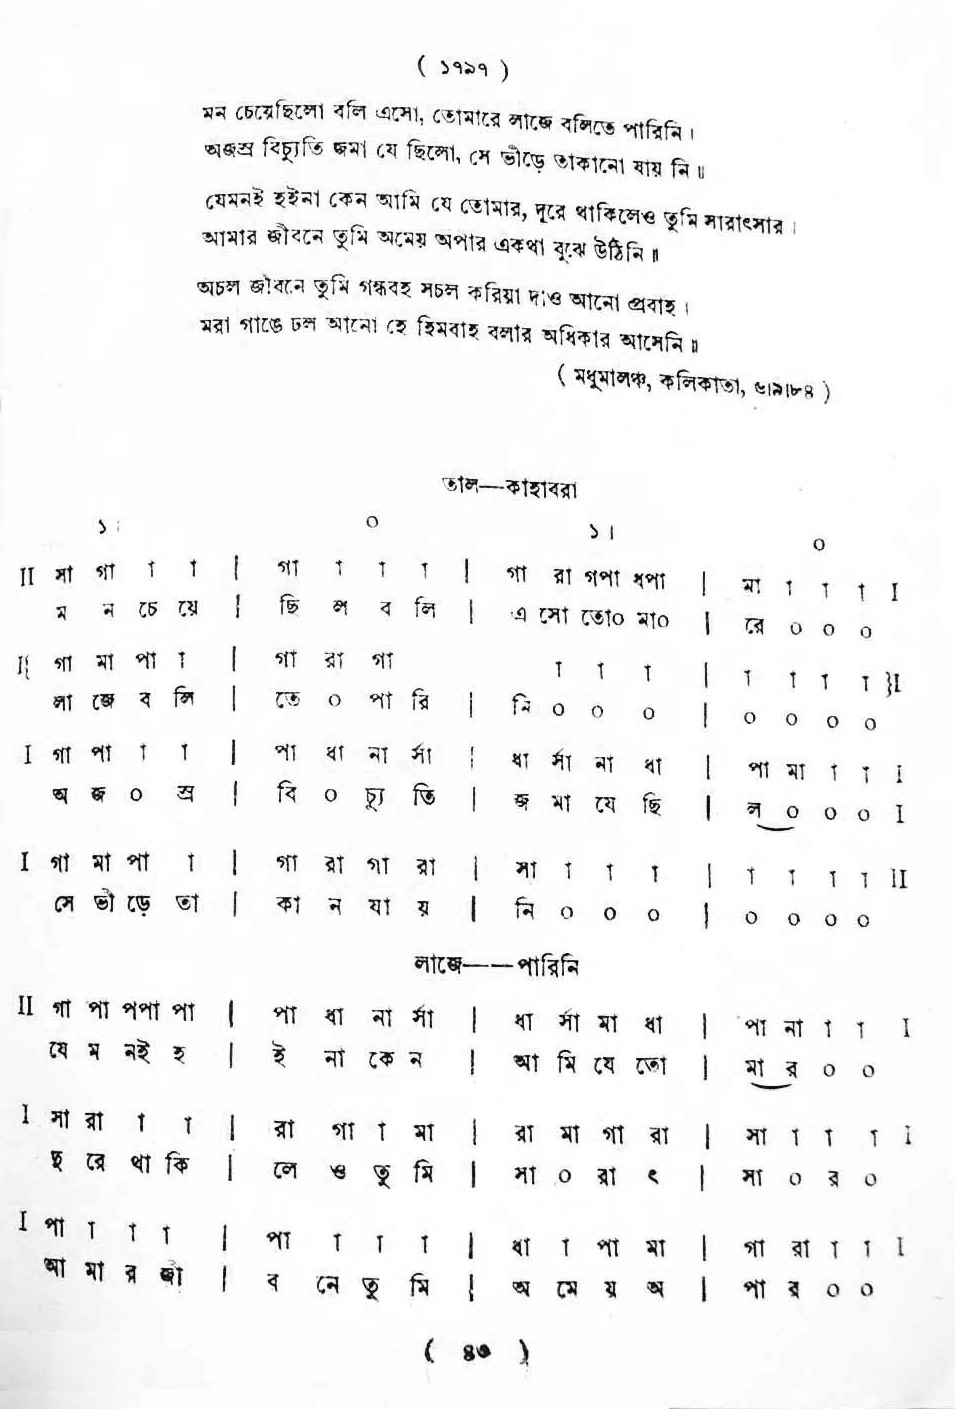 ( ১৭৯৭ )
মন চেয়েছিলো বলি এসো, তোমারে লাজে বলিতে পারিনি।
অজস্র বিচ্যুতি জমা যে ছিলো, সে ভীড়ে তাকানো যায় নি॥
যেমনই হইনা কেন আমি যে তোমার, দূরে থাকিলেও তুমি সারাৎসার।
আমার জীবনে তুমি অমেয় অপার একথা বুঝে উঠিনি॥
অচল জীবনে তুমি গন্ধবহ সচল করিয়া দাও আনো প্রবাহ।
মরা গাঙে ঢল আনো হে হিমবাহ বলার অধিকার আসেনি॥
( মধুমালঞ্চ, কলিকাতা, ৬।৯।৮৪ )
তাল—কাহাবরা
১। ০ ১। ০
II সা গা া া | গা া া া | গা রা গপা ধপা | মা া া া I
ম ন চে য়ে | ছি ল ব লি | এ সো তো০ মা০ | রে ০ ০ ০
I{ গা মা পা া | গা রা গা া া া | া া া া }I
লা জে ব লি | তে ০ পা রি | নি ০ ০ ০ | ০ ০ ০ ০
I গা পা া া | পা ধা না র্সা | ধা র্সা না ধা | পা মা া া I
অ জ ০ স্র | বি ০ চ্যু তি | জ মা যে ছি | ল ০ ০ ০ I
I গা মা পা া | গা রা গা রা | সা া া া | া া া া II
সে ভী ড়ে তা | কা ন যা য় | নি ০ ০ ০ | ০ ০ ০ ০
লাজে——পারিনি
II গা পা পপা পা | পা ধা না র্সা | ধা র্সা মা ধা | পা না া া I
যে ম নই হ | ই না কে ন | আ মি যে তো | মা র ০ ০
I সা রা া া | রা গা া মা | রা মা গা রা | সা া া া I
দু রে থা কি | লে ও তু মি | সা ০ রা ৎ | সা ০ র ০
I পা া া া | পা া া া | ধা া পা মা | গা রা া া I
আ মা র জী | ব নে তু মি | অ মে য় অ | পা র ০ ০
( ৪৩ )